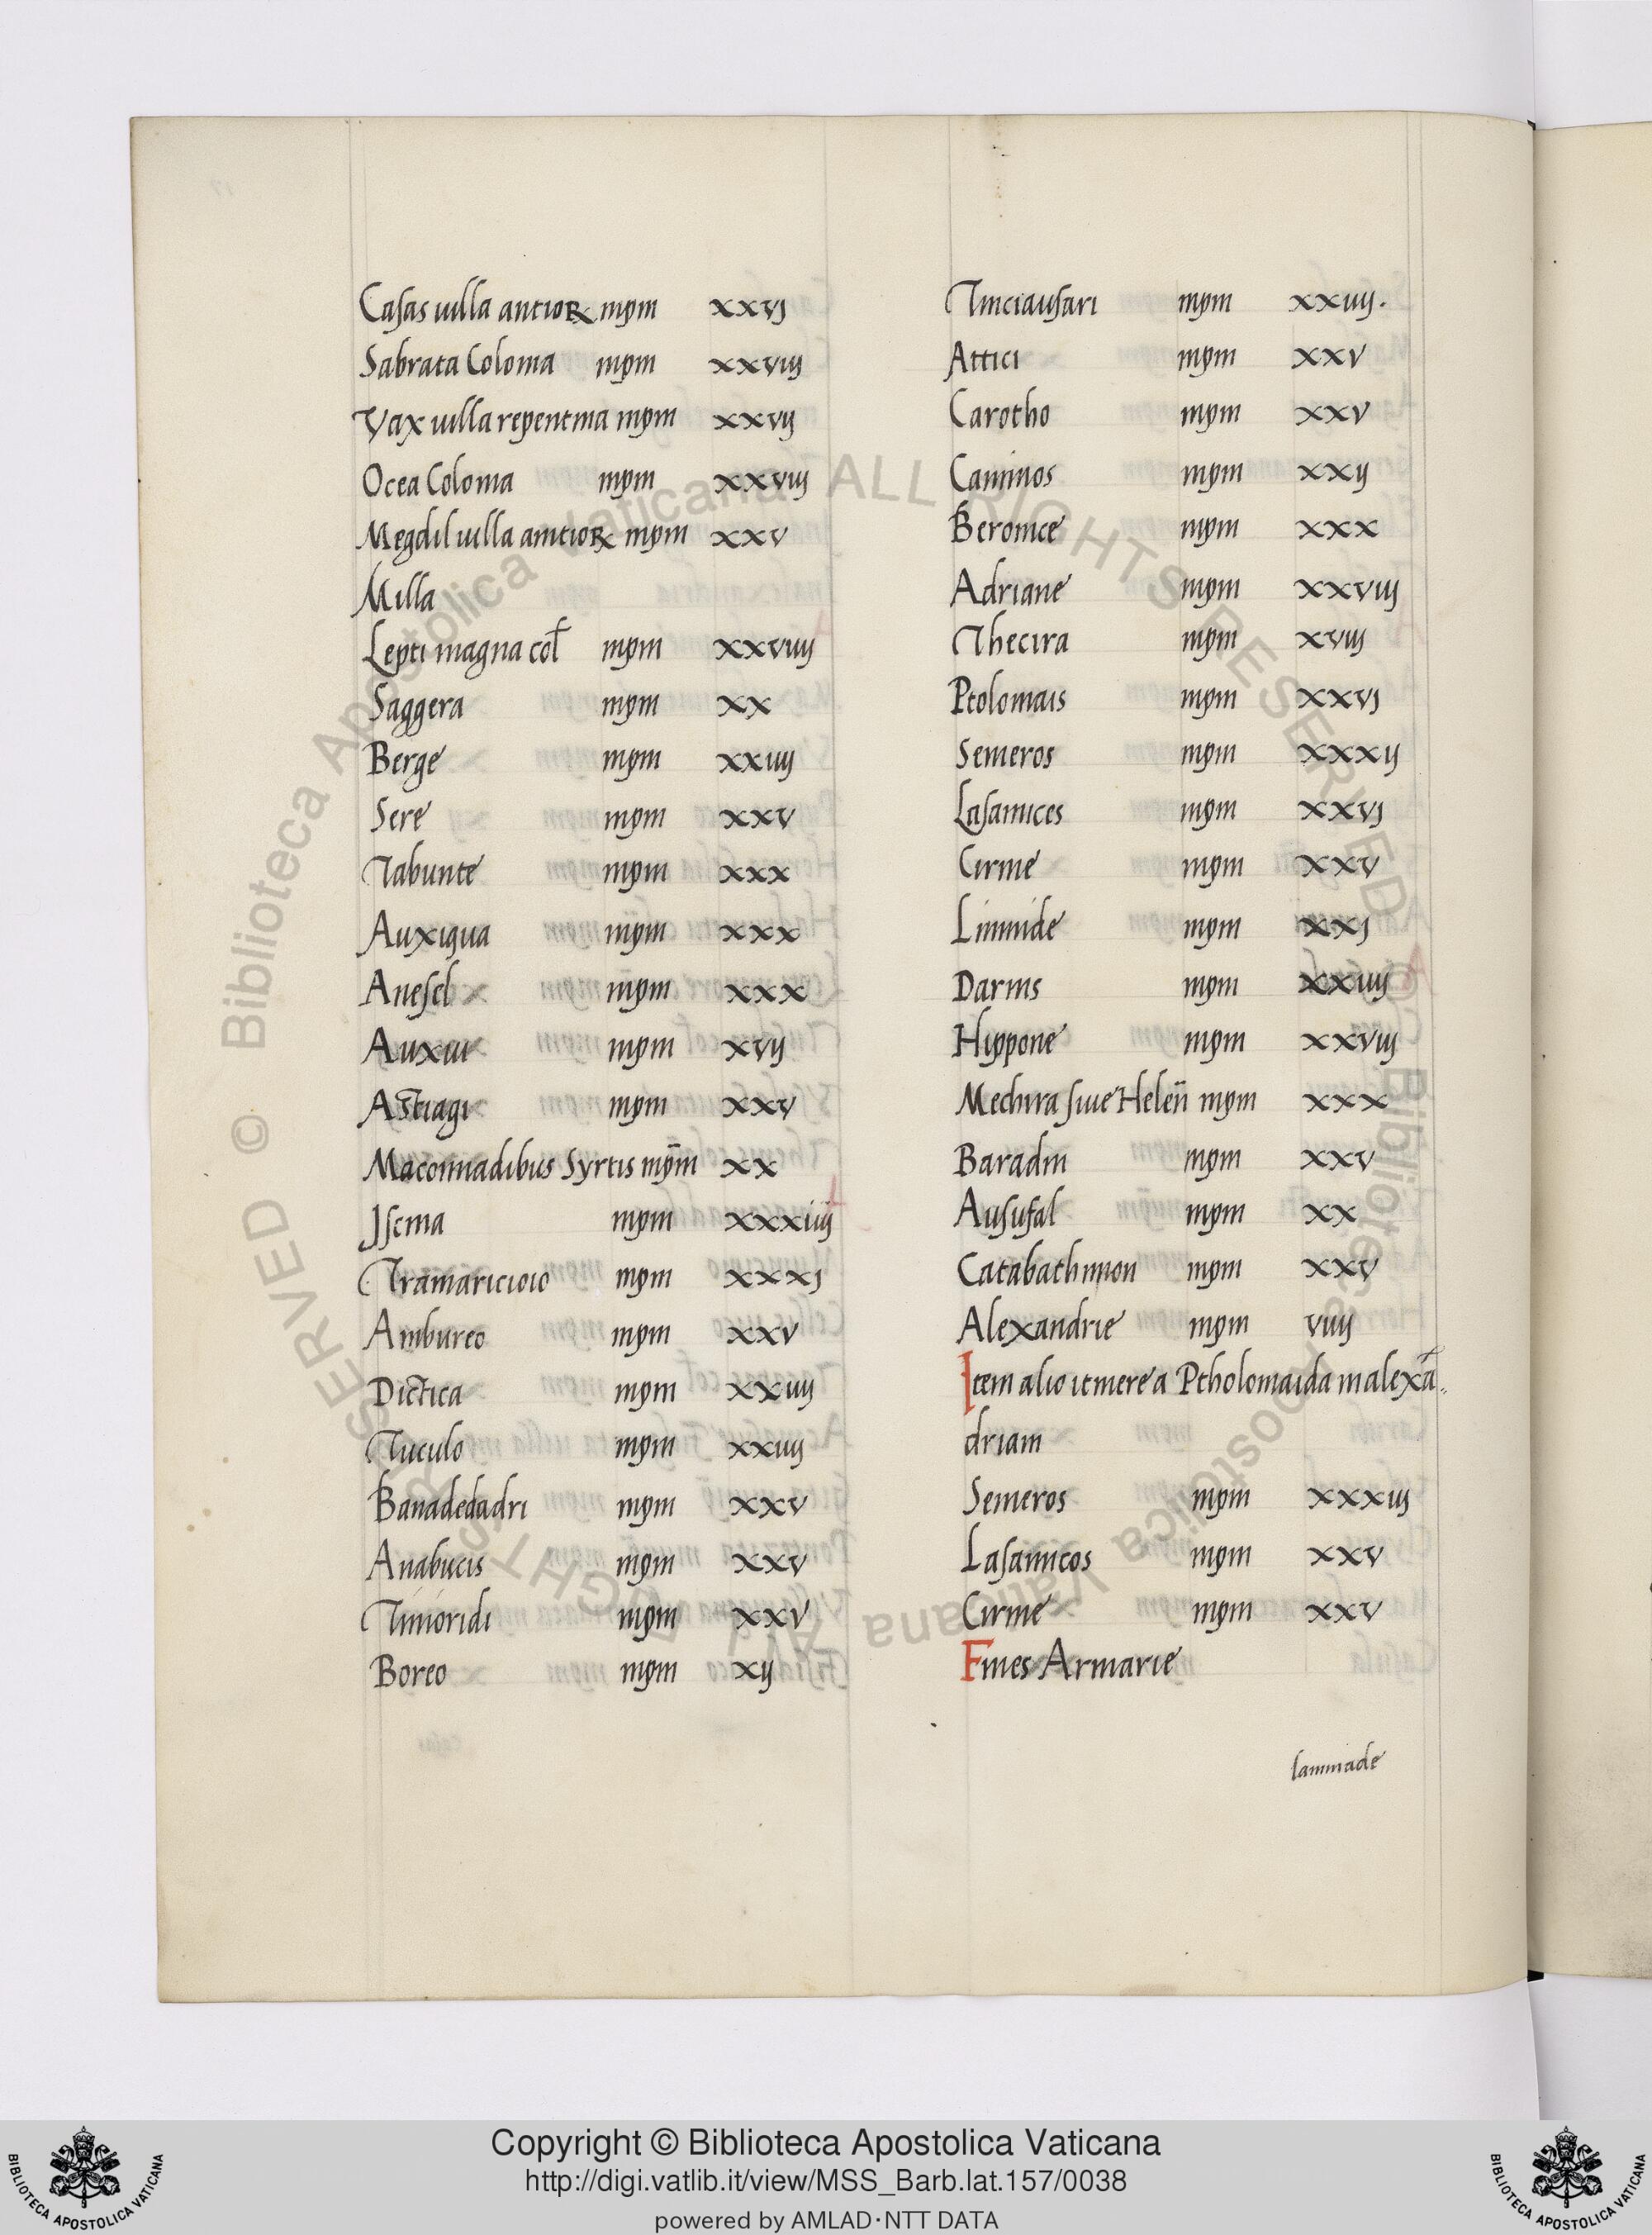 Casas uilla antioꝝ mpm xxvj
Sabrata Colonia mpm xxviij
Vax uilla repentina mpm xxvij
Ocea Colonia mpm xxviij
Megdil uilla amtioꝝ mpm xxv
Milla
Lepti magna col̄ mpm xxviiij
Saggera mpm xx
Berge mpm xxiiij
Sere mpm xxv
Tabunte mpm xxx
Auxiqua mpm xxx
Anesel mpm xxx
Auxiu mpm xvij
Astiagi mpm xxv
Maconnadibus Syrtis mp̄m xx
Iscina mpm xxxiiij
Tramaricioio mpm xxxj
Ambureo mpm xxv
Dictica mpm xxiiij
Tuculo mpm xxiiij
Banadedadri mpm xxv
Anabucis mpm xxv
Timioridi mpm xxv
Boreo mpm xij
Tinciausari mpm xxiiij.
Attici mpm xxv
Carotho mpm xxv
Caminos mpm xxij
Beronice mpm xxx
Adriane mpm xxviij
Thecira mpm xviij
Ptolomais mpm xxvj
Semeros mpm xxxij
Lasamices mpm xxvj
Cirme mpm xxv
Limnide mpm xxj
Darnis mpm xxiiij
Hippone mpm xxviij
Mechira siue Helen̄ mpm xxx
Baradin mpm xxv
Ausufal mpm xx
Catabathmon mpm xxv
Alexandrie mpm viiij
Item alio itinere a Ptholomaida in alexā..
driam
Semeros mpm xxxiij
Lasamicos mpm xxv
Cirme mpm xxv
Fines Armarie
lamniade
© Biblioteca Apostolica Vaticana ALL RIGHTS RESERVED
© Biblioteca Apostolica Vaticana ALL RIGHTS RESERVED
BIBLIOTECA APOSTOLICA VATICANA
Copyright © Biblioteca Apostolica Vaticana
http://digi.vatlib.it/view/MSS_Barb.lat.157/0038
powered by AMLAD·NTT DATA
BIBLIOTECA APOSTOLICA VATICANA